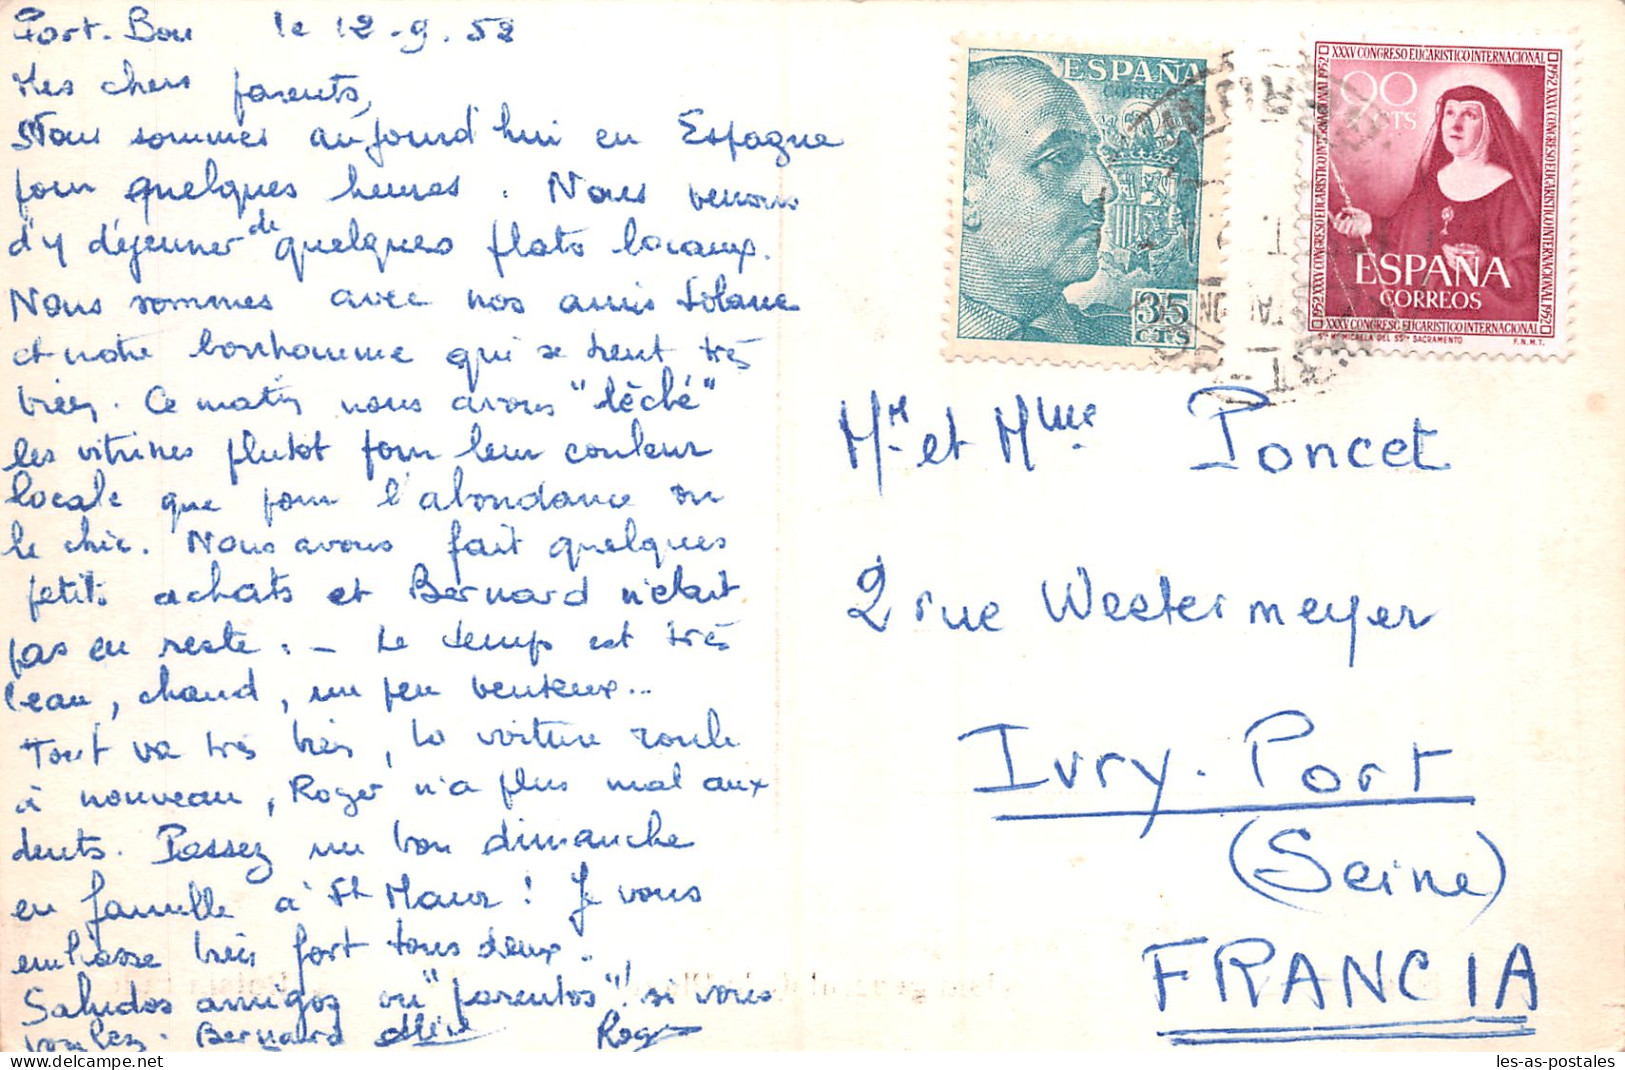 Port-Bou le 12-9.52
Mes chers parents,
Nous sommes aujourd'hui en Espagne
pour quelques heures. Nous venons
d'y déjeuner de quelques plats locaux.
Nous sommes avec nos amis
et notre bonhomme qui se tient très
bien. Ce matin nous avons "lèché"
les vitrines plutôt pour leur couleur
locale que pour l'abondance ou
le chic. Nous avons fait quelques
petits achats et Bernard n'était
pas en reste. - Le temps est très
beau, chaud, un peu venteux...
Tout va très bien, la voiture roule
à nouveau, Roger n'a plus mal aux
dents. Passez un bon dimanche
en famille à St Maur! Je vous
embrasse bien fort tous deux.
Saludos amigos ou "parentos" si vous
voulez. Bernard Roger
ESPAÑA
CORREOS
35
CTS
XXXV CONGRESO EUCARISTICO INTERNACIONAL 1952
90
CTS
ESPAÑA
CORREOS
STA Mª MICAELA DEL SSMO SACRAMENTO F.N.M.T.
Mr et Mme Poncet
2 rue Westermeyer
Ivry-Port
(Seine)
FRANCIA
les-as-postales